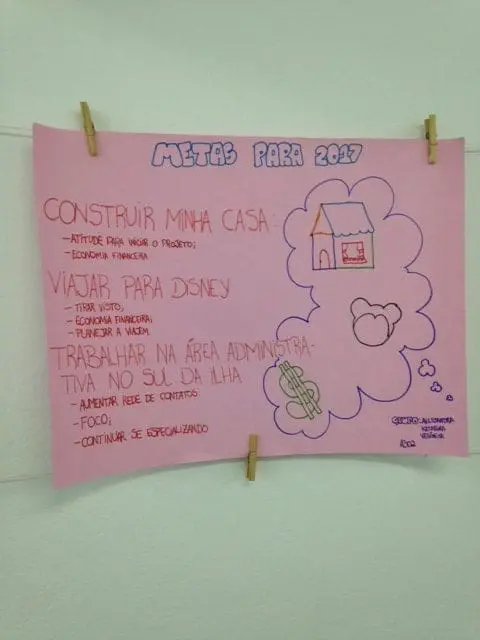 METAS PARA 2017
CONSTRUIR MINHA CASA:
- ATITUDE PARA INICIAR O PROJETO;
- ECONOMIA FINANCEIRA
VIAJAR PARA DISNEY
- TIRAR VISTO;
- ECONOMIA FINANCEIRA;
- PLANEJAR A VIAGEM.
TRABALHAR NA ÁREA ADMINISTRA-
TIVA NO SUL DA ILHA
- AUMENTAR REDE DE CONTATOS
- FOCO;
- CONTINUAR SE ESPECIALIZANDO
$
GRUPO: